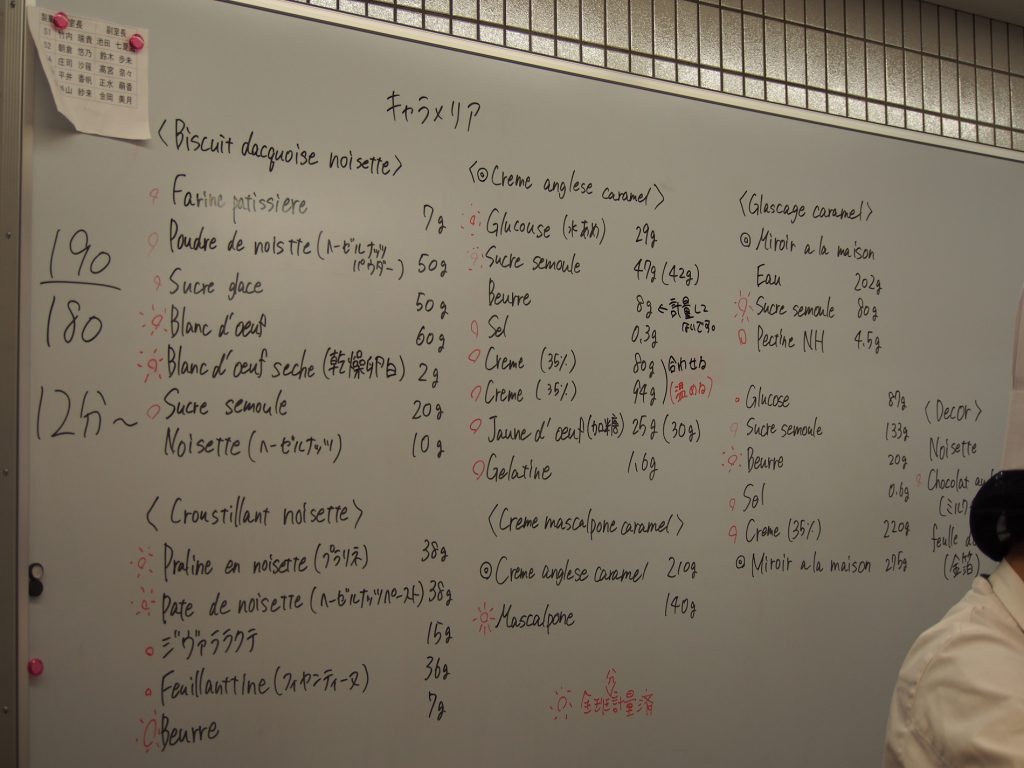 室長 副室長
S1 竹内 瑞貴 池田
S2 朝倉 悠乃 鈴木 歩未
庄司 沙羅 高宮 奈々
平井 香帆 正木 萌香
山 紗来 金岡 美月
キャラメリア
190
180
12分～
〈Biscuit dacquoise noisette〉
Farine patissiere 7g
Poudre de noistte (ヘーゼルナッツパウダー) 50g
Sucre glace 50g
Blanc d'oeuf 60g
Blanc d'oeuf seche (乾燥卵白) 2g
Sucre semoule 20g
Noisette (ヘーゼルナッツ) 10g
〈Croustillant noisette〉
Praline en noisette (プラリネ) 38g
Pate de noisette (ヘーゼルナッツペースト) 38g
ジヴァララクテ 15g
Feuillanttine (フィヤンティーヌ) 36g
Beurre 7g
〈◎Creme anglese caramel〉
Glucouse (水あめ) 29g
Sucre semoule 47g (42g)
Beurre 8g ←計量して
ないです。
Sel 0.3g
Creme (35%) 80g 合わせる
Creme (35%) 94g (温める)
Jaune d'oeuf (加糖) 25g (30g)
Gelatine 1.6g
〈Creme mascalpone caramel〉
◎Creme anglese caramel 210g
Mascalpone 140g
分
全班計量済
〈Glascage caramel〉
◎Miroir a la maison
Eau 202g
Sucre semoule 80g
Pectine NH 4.5g
Glucose 87g
Sucre semoule 133g
Beurre 20g
Sel 0.6g
Creme (35%) 220g
◎Miroir a la maison 295g
〈Decor〉
Noisette
Chocolat au
(ミルク
feulle d
(金箔)